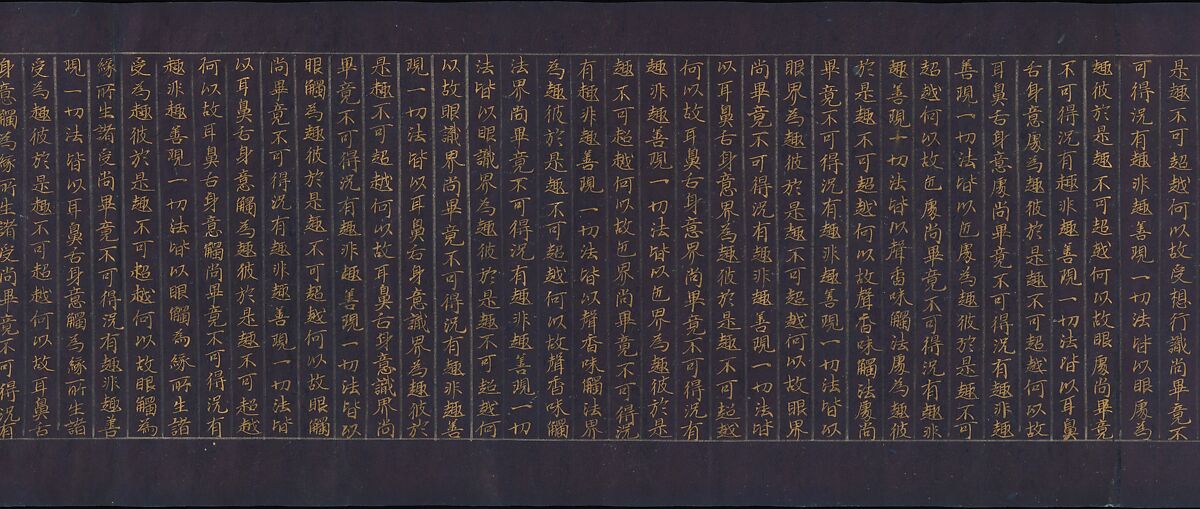 是趣不可超越何以故受想行識尚畢竟不
可得況有趣非趣善現一切法皆以眼處為
趣彼於是趣不可超越何以故眼處尚畢竟
不可得況有趣非趣善現一切法皆以耳鼻
舌身意處為趣彼於是趣不可超越何以故
耳鼻舌身意處尚畢竟不可得況有趣非趣
善現一切法皆以色處為趣彼於是趣不可
超越何以故色處尚畢竟不可得況有趣非
趣善現一切法皆以聲香味觸法處為趣彼
於是趣不可超越何以故聲香味觸法處尚
畢竟不可得況有趣非趣善現一切法皆以
眼界為趣彼於是趣不可超越何以故眼界
尚畢竟不可得況有趣非趣善現一切法皆
以耳鼻舌身意界為趣彼於是趣不可超越
何以故耳鼻舌身意界尚畢竟不可得況有
趣非趣善現一切法皆以色界為趣彼於是
趣不可超越何以故色界尚畢竟不可得況
有趣非趣善現一切法皆以聲香味觸法界
為趣彼於是趣不可超越何以故聲香味觸
法界尚畢竟不可得況有趣非趣善現一切
法皆以眼識界為趣彼於是趣不可超越何
以故眼識界尚畢竟不可得況有趣非趣善
現一切法皆以耳鼻舌身意識界為趣彼於
是趣不可超越何以故耳鼻舌身意識界尚
畢竟不可得況有趣非趣善現一切法皆以
眼觸為趣彼於是趣不可超越何以故眼觸
尚畢竟不可得況有趣非趣善現一切法皆
以耳鼻舌身意觸為趣彼於是趣不可超越
何以故耳鼻舌身意觸尚畢竟不可得況有
趣非趣善現一切法皆以眼觸為緣所生諸
受為趣彼於是趣不可超越何以故眼觸為
緣所生諸受尚畢竟不可得況有趣非趣善
現一切法皆以耳鼻舌身意觸為緣所生諸
受為趣彼於是趣不可超越何以故耳鼻舌
身意觸為緣所生諸受尚畢竟不可得況有